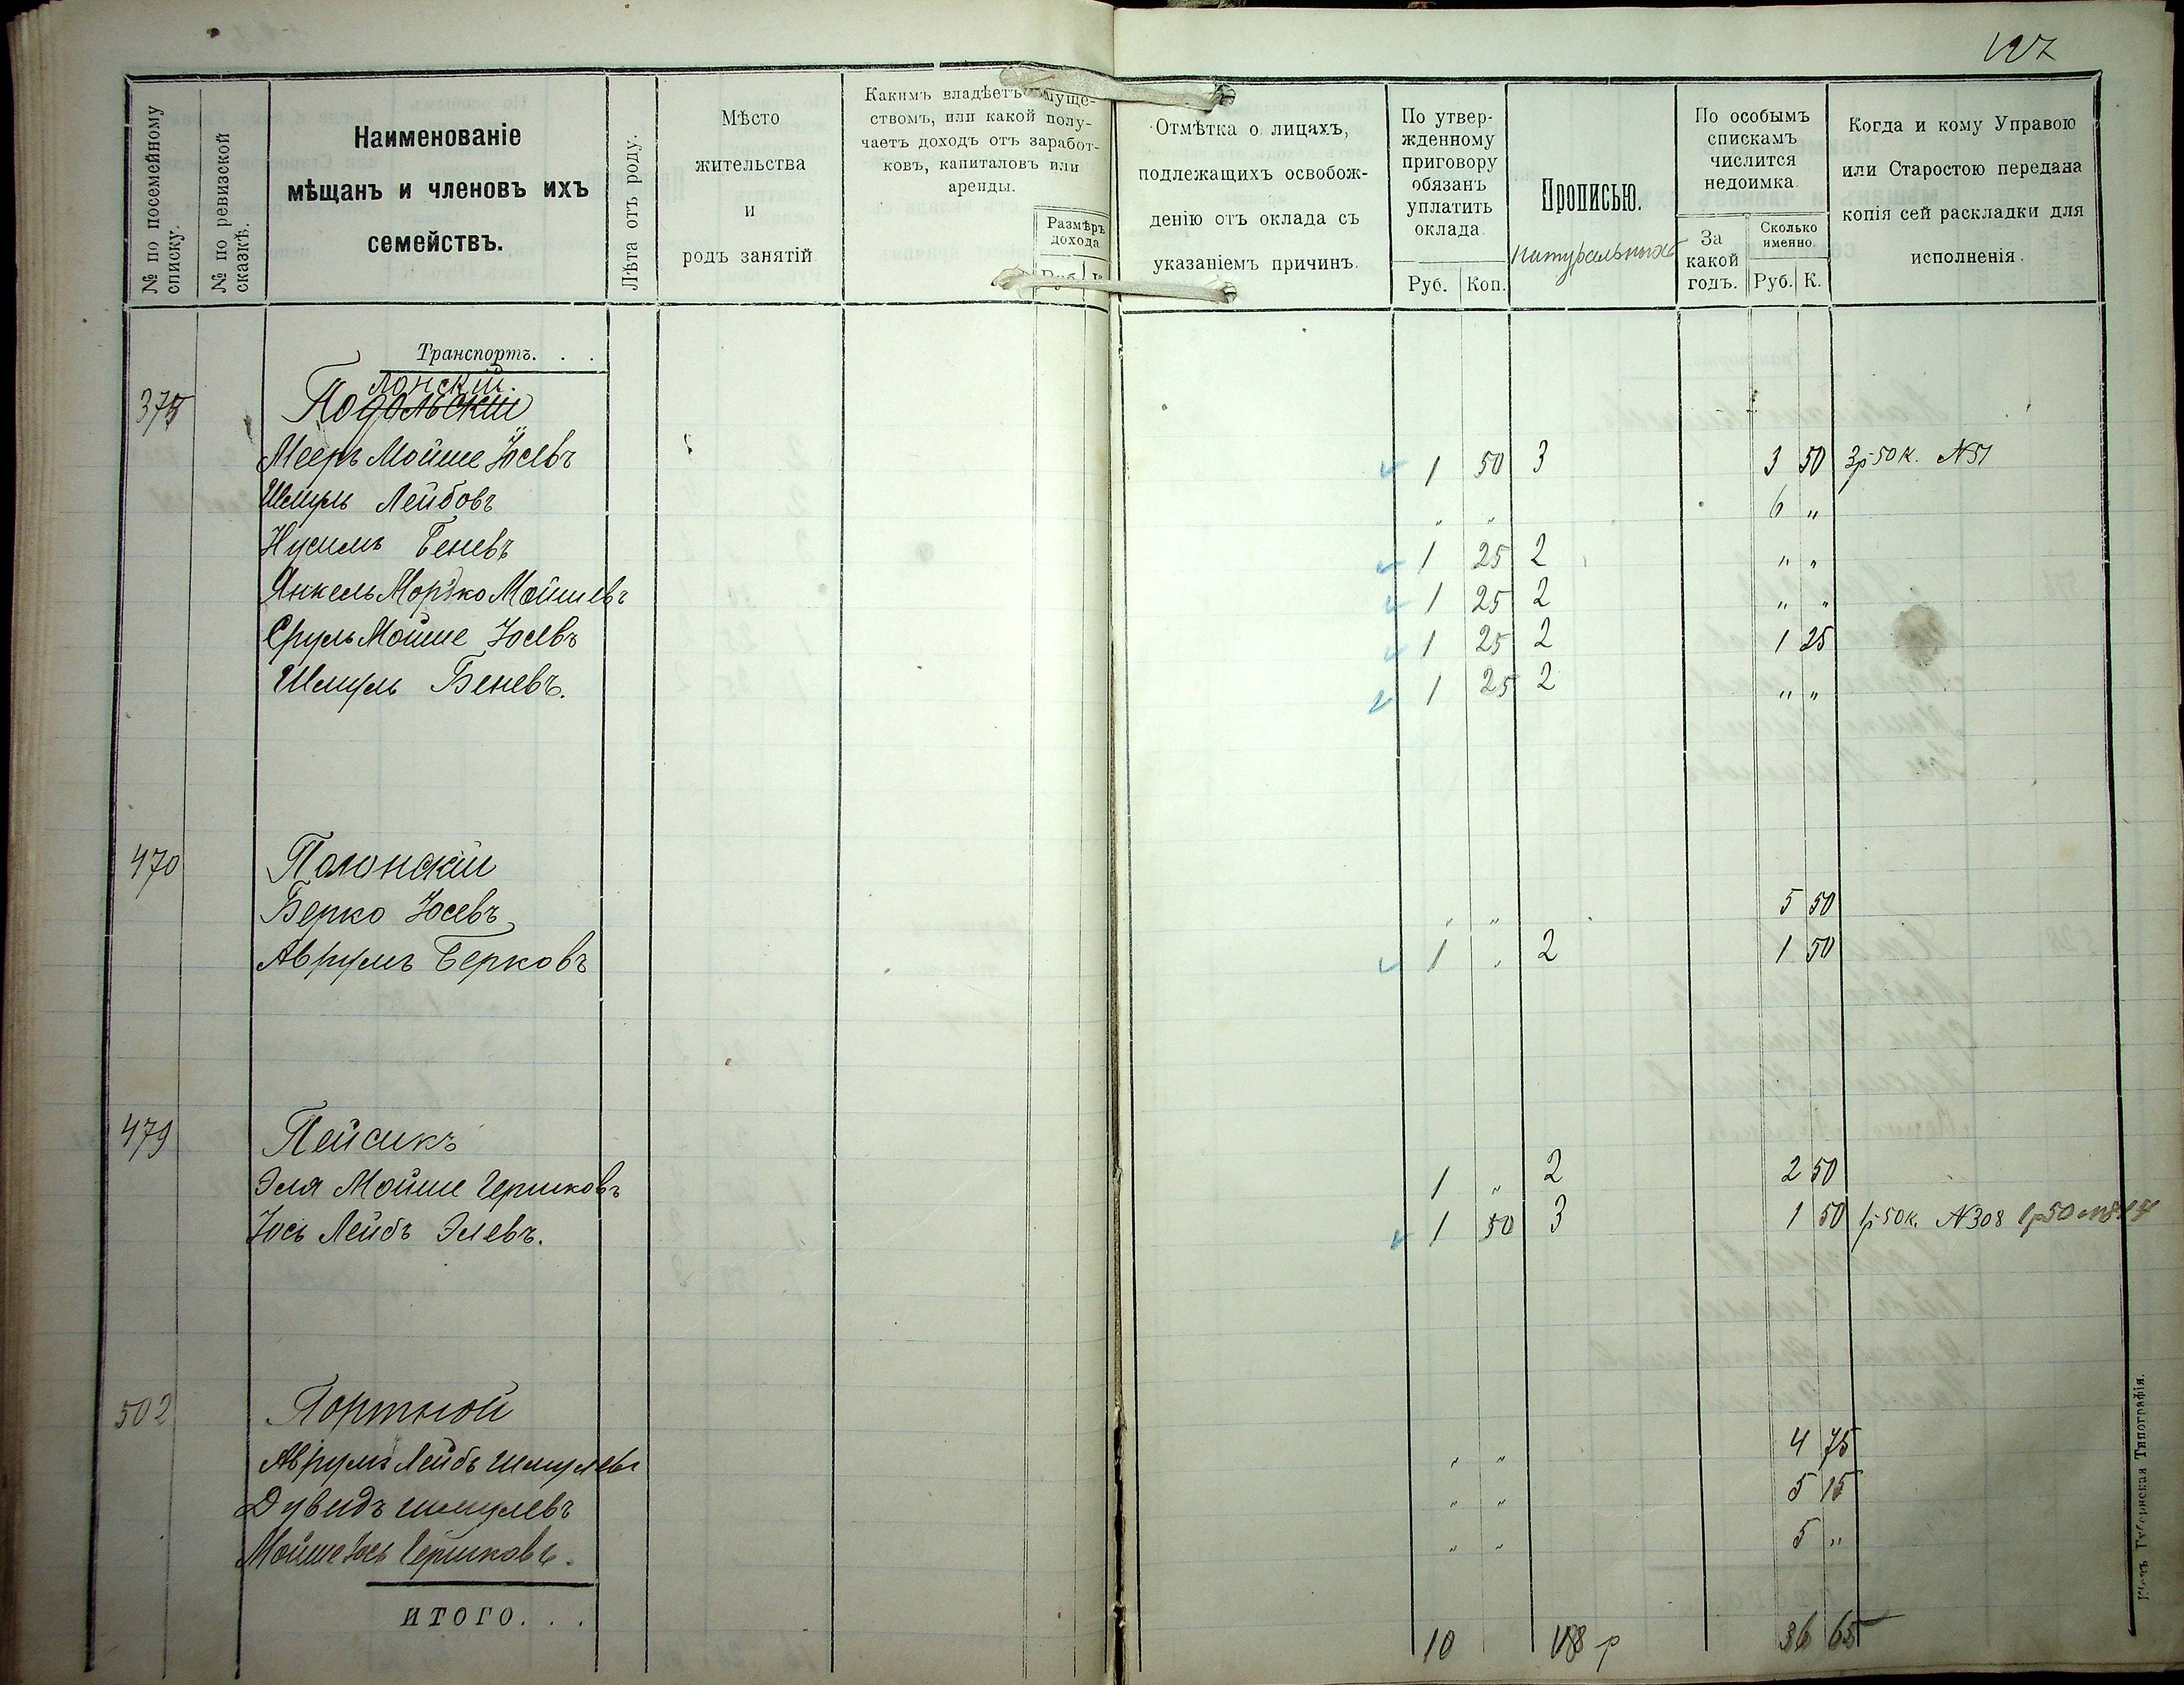 127
№ по посемейному списку.
№ по ревизской сказкѣ.
Наименованіе
мѣщанъ и членовъ ихъ
семействъ.
Лѣта отъ роду.
Мѣсто
жительства
и
родъ занятій
Какимъ владѣетъ имуще-
ствомъ, или какой полу-
чаетъ доходъ отъ заработ-
ковъ, капиталовъ или
аренды.
Размѣръ
дохода
Руб. К
Отмѣтка о лицахъ,
подлежащихъ освобож-
денію отъ оклада съ
указаніемъ причинъ.
По утвер-
жденному
приговору
обязанъ
уплатить
оклада.
Руб. Коп.
Прописью.
По особымъ
спискамъ
числится
недоимка
За
какой
годъ.
Сколько
именно.
Руб. К.
Когда и кому Управою
или Старостою передана
копія сей раскладки для
исполненія.
Транспортъ. . .
лонскій.
375 Подольскій
Мееръ Мойше Іосевъ 1 50 3 3 50 3р 50 к. N 51
Шмуль Лейбовъ " " 6 "
Нусимъ Беневъ 1 25 2 " "
Янкель Мордко Мойшевъ 1 25 2 " "
Сруль Мойше Іосевъ 1 25 2 1 25
Шмуль Беневъ. 1 25 2 " "
470 Полонскій
Берко Іосевъ " " 5 50
Аврумъ Берковъ 1 " 2 1 50
479 Пейсикъ
Эля Мойше Гершковъ 1 " 2 2 50
Іось Лейбъ Элевъ. 1 50 3 1 50 1р 50 к. N 308 1р 50
502 Портной
Аврумъ Лейбъ Шмулевъ " " 4 75
Дувидъ Шмулевъ " " 5 15
Мойше Іось Гершковъ. " " 5 "
ИТОГО. . .
10 18 р 36 65
Губернская Типографія.